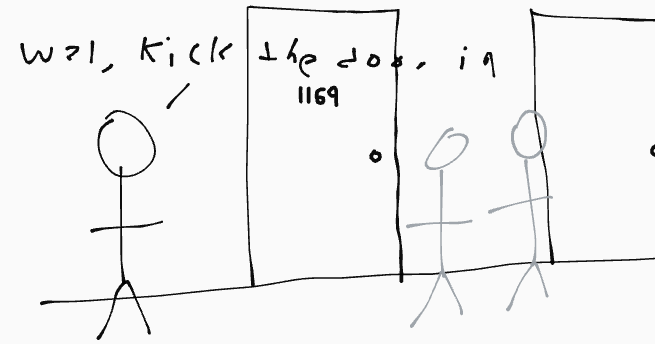 Kick the door in
1169